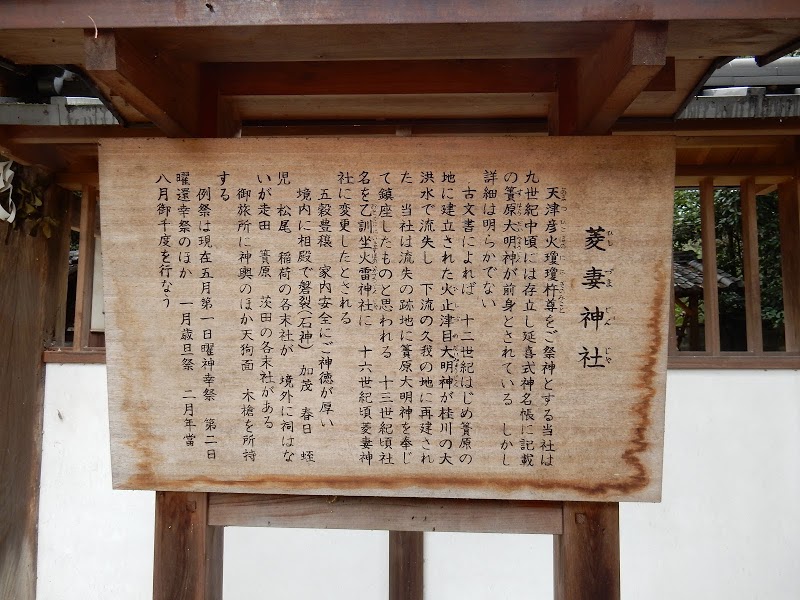 菱妻神社
ひし づま じん じゃ
天津彦火瓊瓊杵尊をご祭神とする当社は
九世紀中頃には存立し延喜式神名帳に記載
の簀原大明神が前身とされている しかし
詳細は明らかでない
古文書によれば 十二世紀はじめ簀原の
地に建立された火止津目大明神が桂川の大
洪水で流失し 下流の久我の地に再建され
た 当社は流失の跡地に簀原大明神を奉じ
て鎮座したものと思われる 十三世紀頃社
名を乙訓坐火雷神社に 十六世紀頃菱妻神
社に変更したとされる
五穀豊穣 家内安全にご神徳が厚い
境内に相殿で磐裂(石神) 加茂 春日 蛭
児 松尾 稲荷の各末社が 境外に祠はな
いが走田 簀原 茨田の各末社がある
御旅所に神輿のほか天狗面 木槍を所持
する
例祭は現在五月第一日曜神幸祭 第二日
曜還幸祭のほか 一月歳旦祭 二月年當
八月御千度を行なう